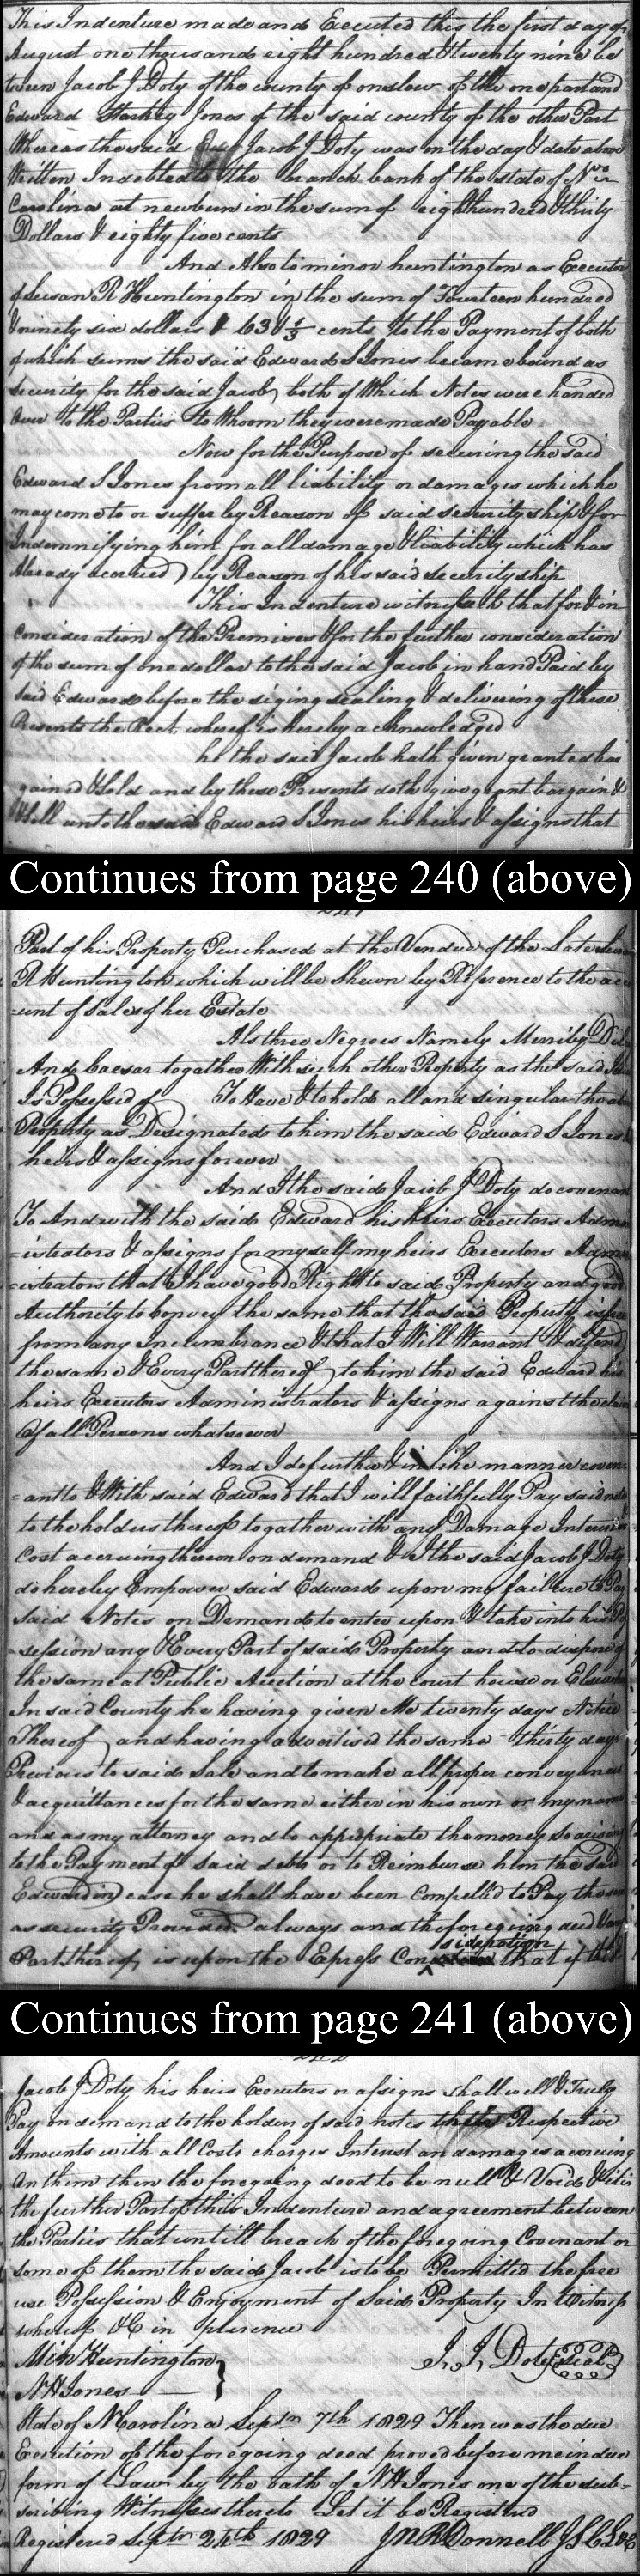 This Indenture made and Executed this the first day of
August one thousand eight hundred & twenty nine be
tween Jacob J Doty of the county of onslow of the one part and
Edward Starkey Jones of the said county of the other Part
Whereas the said Jacob J Doty was on the day & date above
Written Indebted to the branch bank of the state of No
Carolina at newbern in the sum of eight hundred & thirty
Dollars & eighty five cents
And Also to minor huntington as Executor
of Susan R Huntington in the sum of Fourteen hundred
& ninety six dollars & 63 1/3 cents to the Payment of both
of which sums the said Edward S Jones became bound as
security for the said Jacob both of Which Notes were handed
over to the Parties to Whoom they were made Payable
Now for the Purpose of securing the said
Edward S Jones from all liability or damages which he
may come to or suffer by Reason of said security ship & for
Indemnifying him for all damage & liability which has
Already accrued by Reason of his said security ship
This Indenture witnesseth that for & in
consideration of the Premises & for the further consideration
of the sum of one dollar to the said Jacob in hand Paid by
said Edward before the siging sealing & delivering of these
Presents the Rect. whereof is hereby acknowledged
he the said Jacob hath given granted bar
gained & sold and by these Presents doth give grant bargain &
& sell unto the said Edward S Jones his heirs & assigns that
Continues from page 240 (above)
Part of his Property Purchased at the Vendue of the Late
R Huntington which will be Shewn by Reference to the acc
=unt of Sales of her Estate
Als three Negroes Namely
And Caesar togather With such other Property as the said
Is Possessid of To Have & to hold all and singular the
Property as Designated to him the said Edward S Jones
heirs & assigns forever
And I the said Jacob J Doty do covenant
To And with the said Edward his heirs Executors Admin
=istrators & assigns for myself my heirs Executors Admin
=istrators that I have good Right to said Property and good
Authority to Convey the same that the said Property is free
from any Incumbrance & that I Will Warrant & defend
the same & Every Part thereof to him the said Edward his
heirs Executors Administrators & assigns against the claim
Of all Persons whatsoever
And I do further & in like manner coven
=ant to & With said Edward that I will faithfully Pay said notes
to the holders thereof togather with any Damage Interest
Cost accruing thereon on demand & I the said Jacob J Doty
do hereby Empower said Edward upon my failure to Pay
said Notes on Demand to enter upon & take into his Pos
=session any & Every Part of said Property and to dispose of
the same at Public Auction at the court house or Elsewhere
In said County he having given Me twenty days Notice
Thereof and having advertised the same thirty days
Previous to said Sale and to make all proper conveyances
& acquittances for the same either in his own or my name
and as my attorney and to appropriate the money so arising
to the Payment of said debts or to Reimburse him the said
Edward in case he shall have been Compelled to Pay the same
as security Provided always and the foregoing deed & any
sideration
Part thereof is upon the Express Con that if the
Continues from page 241 (above)
Jacob J Doty his heirs Executors or assigns shall well & Truly
Pay on demand to the holder of said notes Respective
Amounts with all Costs charges Interest an damages accruing
On them then the foregoing deed to be null & Void & it is
the further Part of this Indenture and agreement between
the Parties that untill breach of the foregoing Covenant or
some of them the said Jacob is to be Permitted the free
use Possession & Enjoyment of Said Property In Witness
whereof &C in presence
Min Huntington
J. J. Doty (Seal)
N H Jones
State of N Carolina Septr 7th 1829 Then was the due
Execution of the foregoing deed proved before me in due
form of Law by the oath of N H Jones one of the sub=
scribing Witnesses thereto Let it be Registred
Registered Septr 24th 1829 JNR Donnell JSCL&E